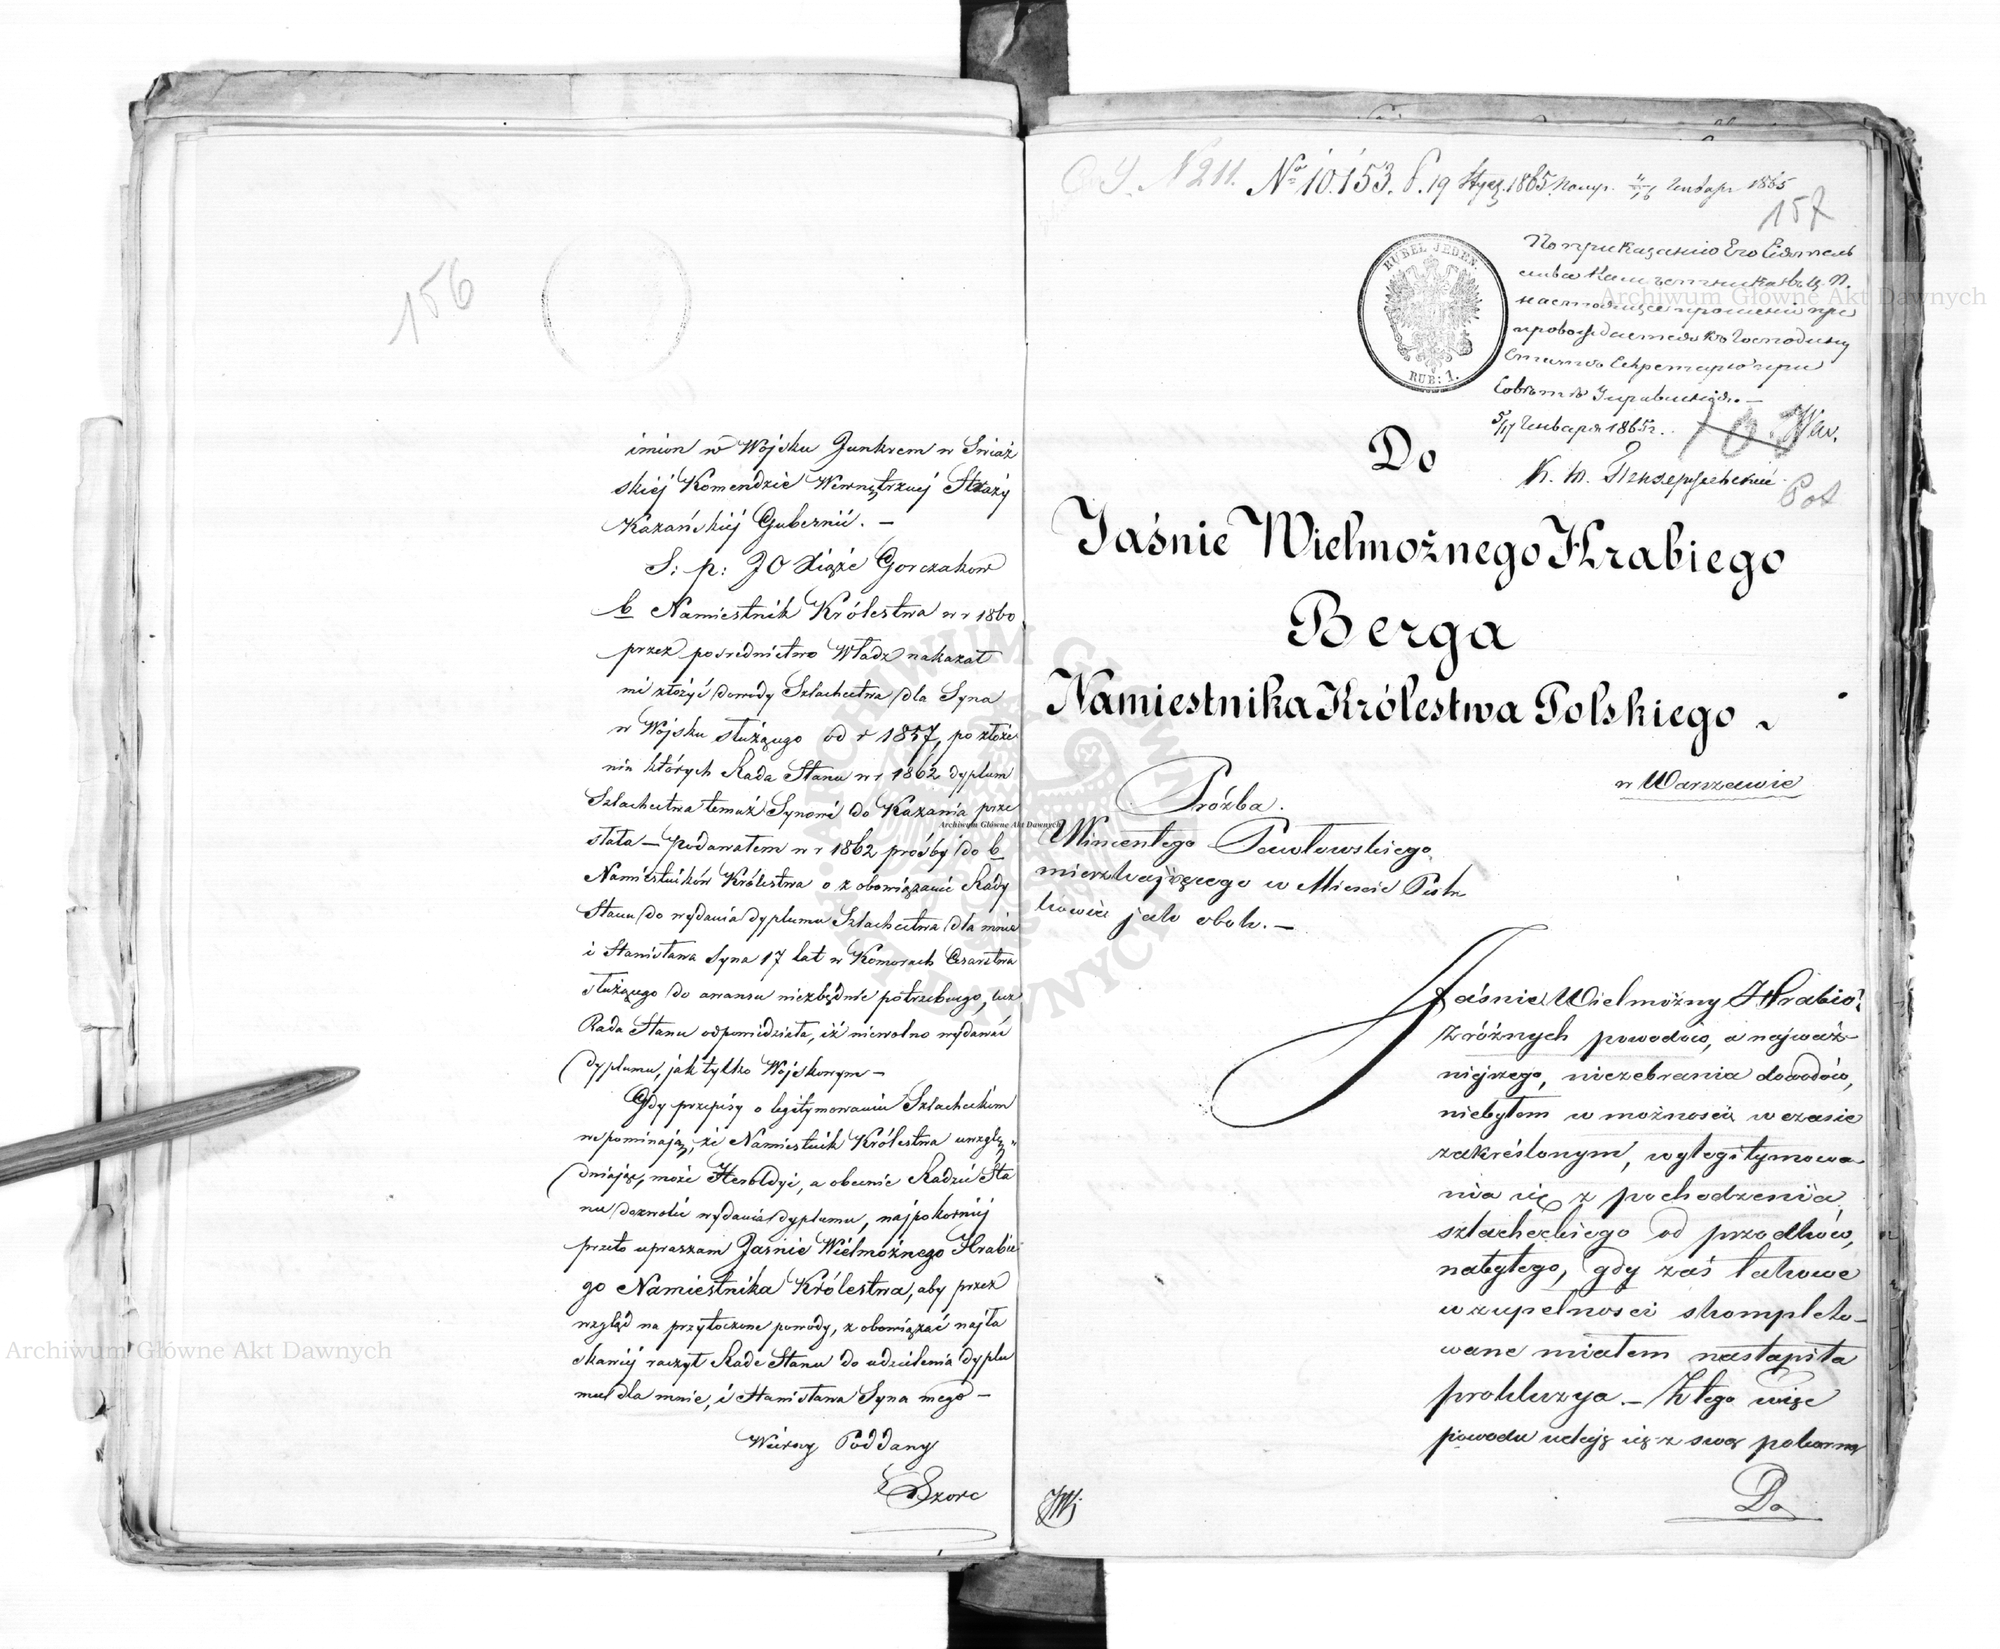 156
imion w Wojsku Junkrem w Swiaż
skiej Komendzie Wewnętrznej Straży
Kazańskiej Gubernii. —
Ś: p: JO Xiąże Gorczakow
b Namiestnik Królestwa w r 1860
przez pośrednictwo Władz nakazał
mi złożyć dowody Szlachectwa dla Syna
w Wojsku służącego od r 1857, po złoże
niu których Rada Stanu w r 1862 dyplom
Szlachectwa temuż Synowi do Kazania prze
słała — Podawałem w r 1862 prośby do b
Namiestników Królestwa o zobowiązanie Rady
Stanu do wydania dyplomu Szlachectwa dla mnie
i Stanisława Syna 17 lat w Komorach Cesarstwa
służącego do awansu niezbędnie potrzebnego, lecz
Rada Stanu odpowiedziała, iż niewolno wydawać
dyplomu, jak tylko Wojskowym —
Gdy przepisy o legitymowaniu Szlacheckim
wspominają, że Namiestnik Królestwa uwzglę„
dniając, może Heroldyi, a obecnie Radzie Sta
nu dozwolić wydania dyplomu, najpokorniej
przeto upraszam Jaśnie Wielmożnego Hrabie
go Namiestnika Królestwa, aby przez
wzgląd na przytoczone powody, zobowiązać najła
skawiej raczył Rade Stanu do udzielenia dyplo
mu dla mnie, i Stanisława Syna mego —
Wierny Poddany
Szorc
N 211. No 10.153. d. 19 Stycz. 1865. Января 1865
157
RUBEL JEDEN.
RUB: 1.
По приказанию Его Сіятель
ства Намѣстника въ Ц. П.
настоящее прошеніе пре
провождается къ Господину
Статсъ Секретарю при
Совѣтѣ Управленія. —
5/17 Января 1865 г.
Do
Jaśnie Wielmożnego Hrabiego
Berga
Namiestnika Królestwa Polskiego
w Warszawie
Prózba.
Wincentego Pawłowskiego
mieszkającego w Mieście Piotr
kowie jako obok. —
Jaśnie Wielmożny Hrabio!
Z różnych powodów, a najważ-
niejszego, niezebrania dowodów,
niebyłem w możności w czasie
zakreślonym, wylegitymowa-
nia się z pochodzenia
szlacheckiego od przodków,
nabytego, gdy zaś takowe
w zupełności skompleto-
wane miałem nastąpiła
prekluzya. — Z tego więc
powodu udaję się z swą pokorną
Do
Archiwum Główne Akt Dawnych
Archiwum Główne Akt Dawnych
Archiwum Główne Akt Dawnych